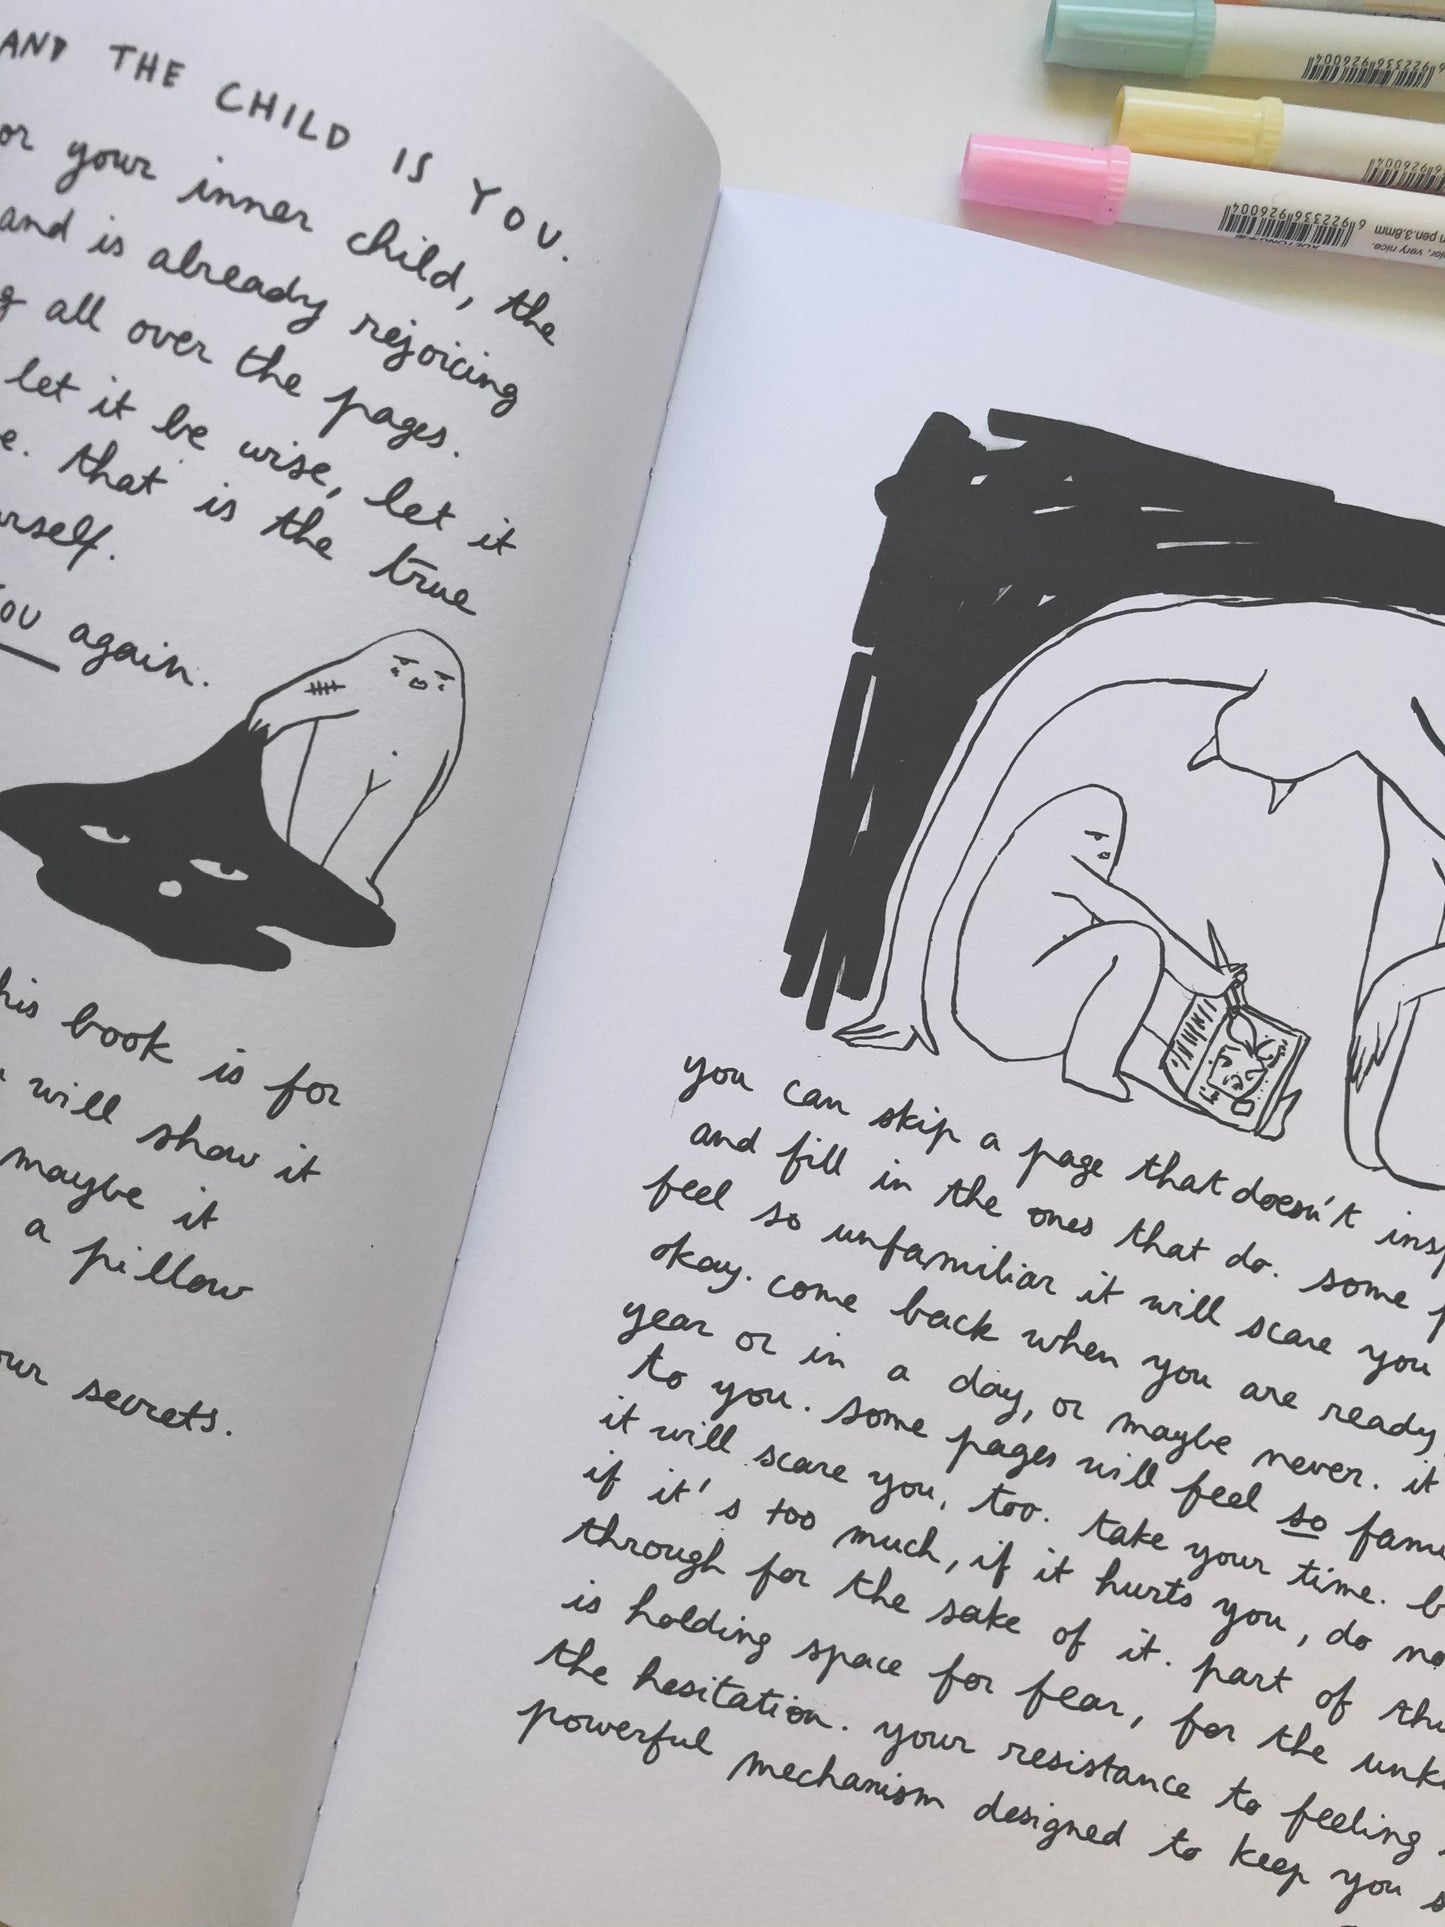 AND THE CHILD IS YOU.
or your inner child, the
and is already rejoicing
g all over the pages.
let it be wise, let it
e. that is the true
urself.
YOU again.
this book is for
will show it
maybe it
a pillow
our secrets.
you can skip a page that doesn't insp
and fill in the ones that do. some p
feel so unfamiliar it will scare you
okay. come back when you are ready,
year or in a day, or maybe never. it
to you. some pages will feel so fami
it will scare you, too. take your time. b
if it's too much, if it hurts you, do no
through for the sake of it. part of thi
is holding space for fear, for the unk
the hesitation. your resistance to feeling
powerful mechanism designed to keep you s
6 922336 926004
6 922336 926004
6 922336 926004
n pen.3.8mm
olor, very nice.